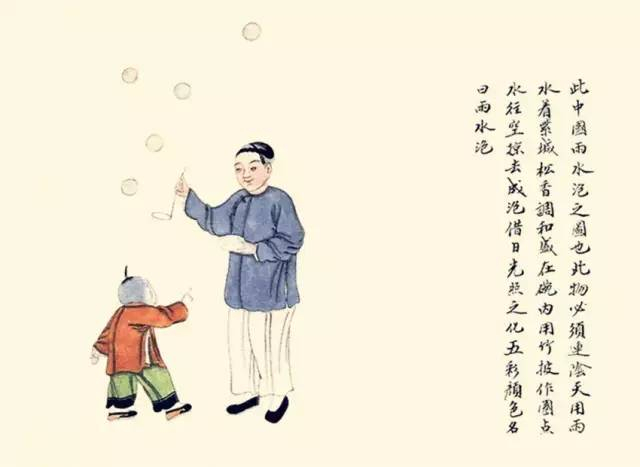 此中國雨水泡之圖也此物必須連陰天用雨
水着紫城松香調和盛在碗内用竹披作圈点
水往空掠去成泡借日光照之化五彩顏色名
曰雨水泡